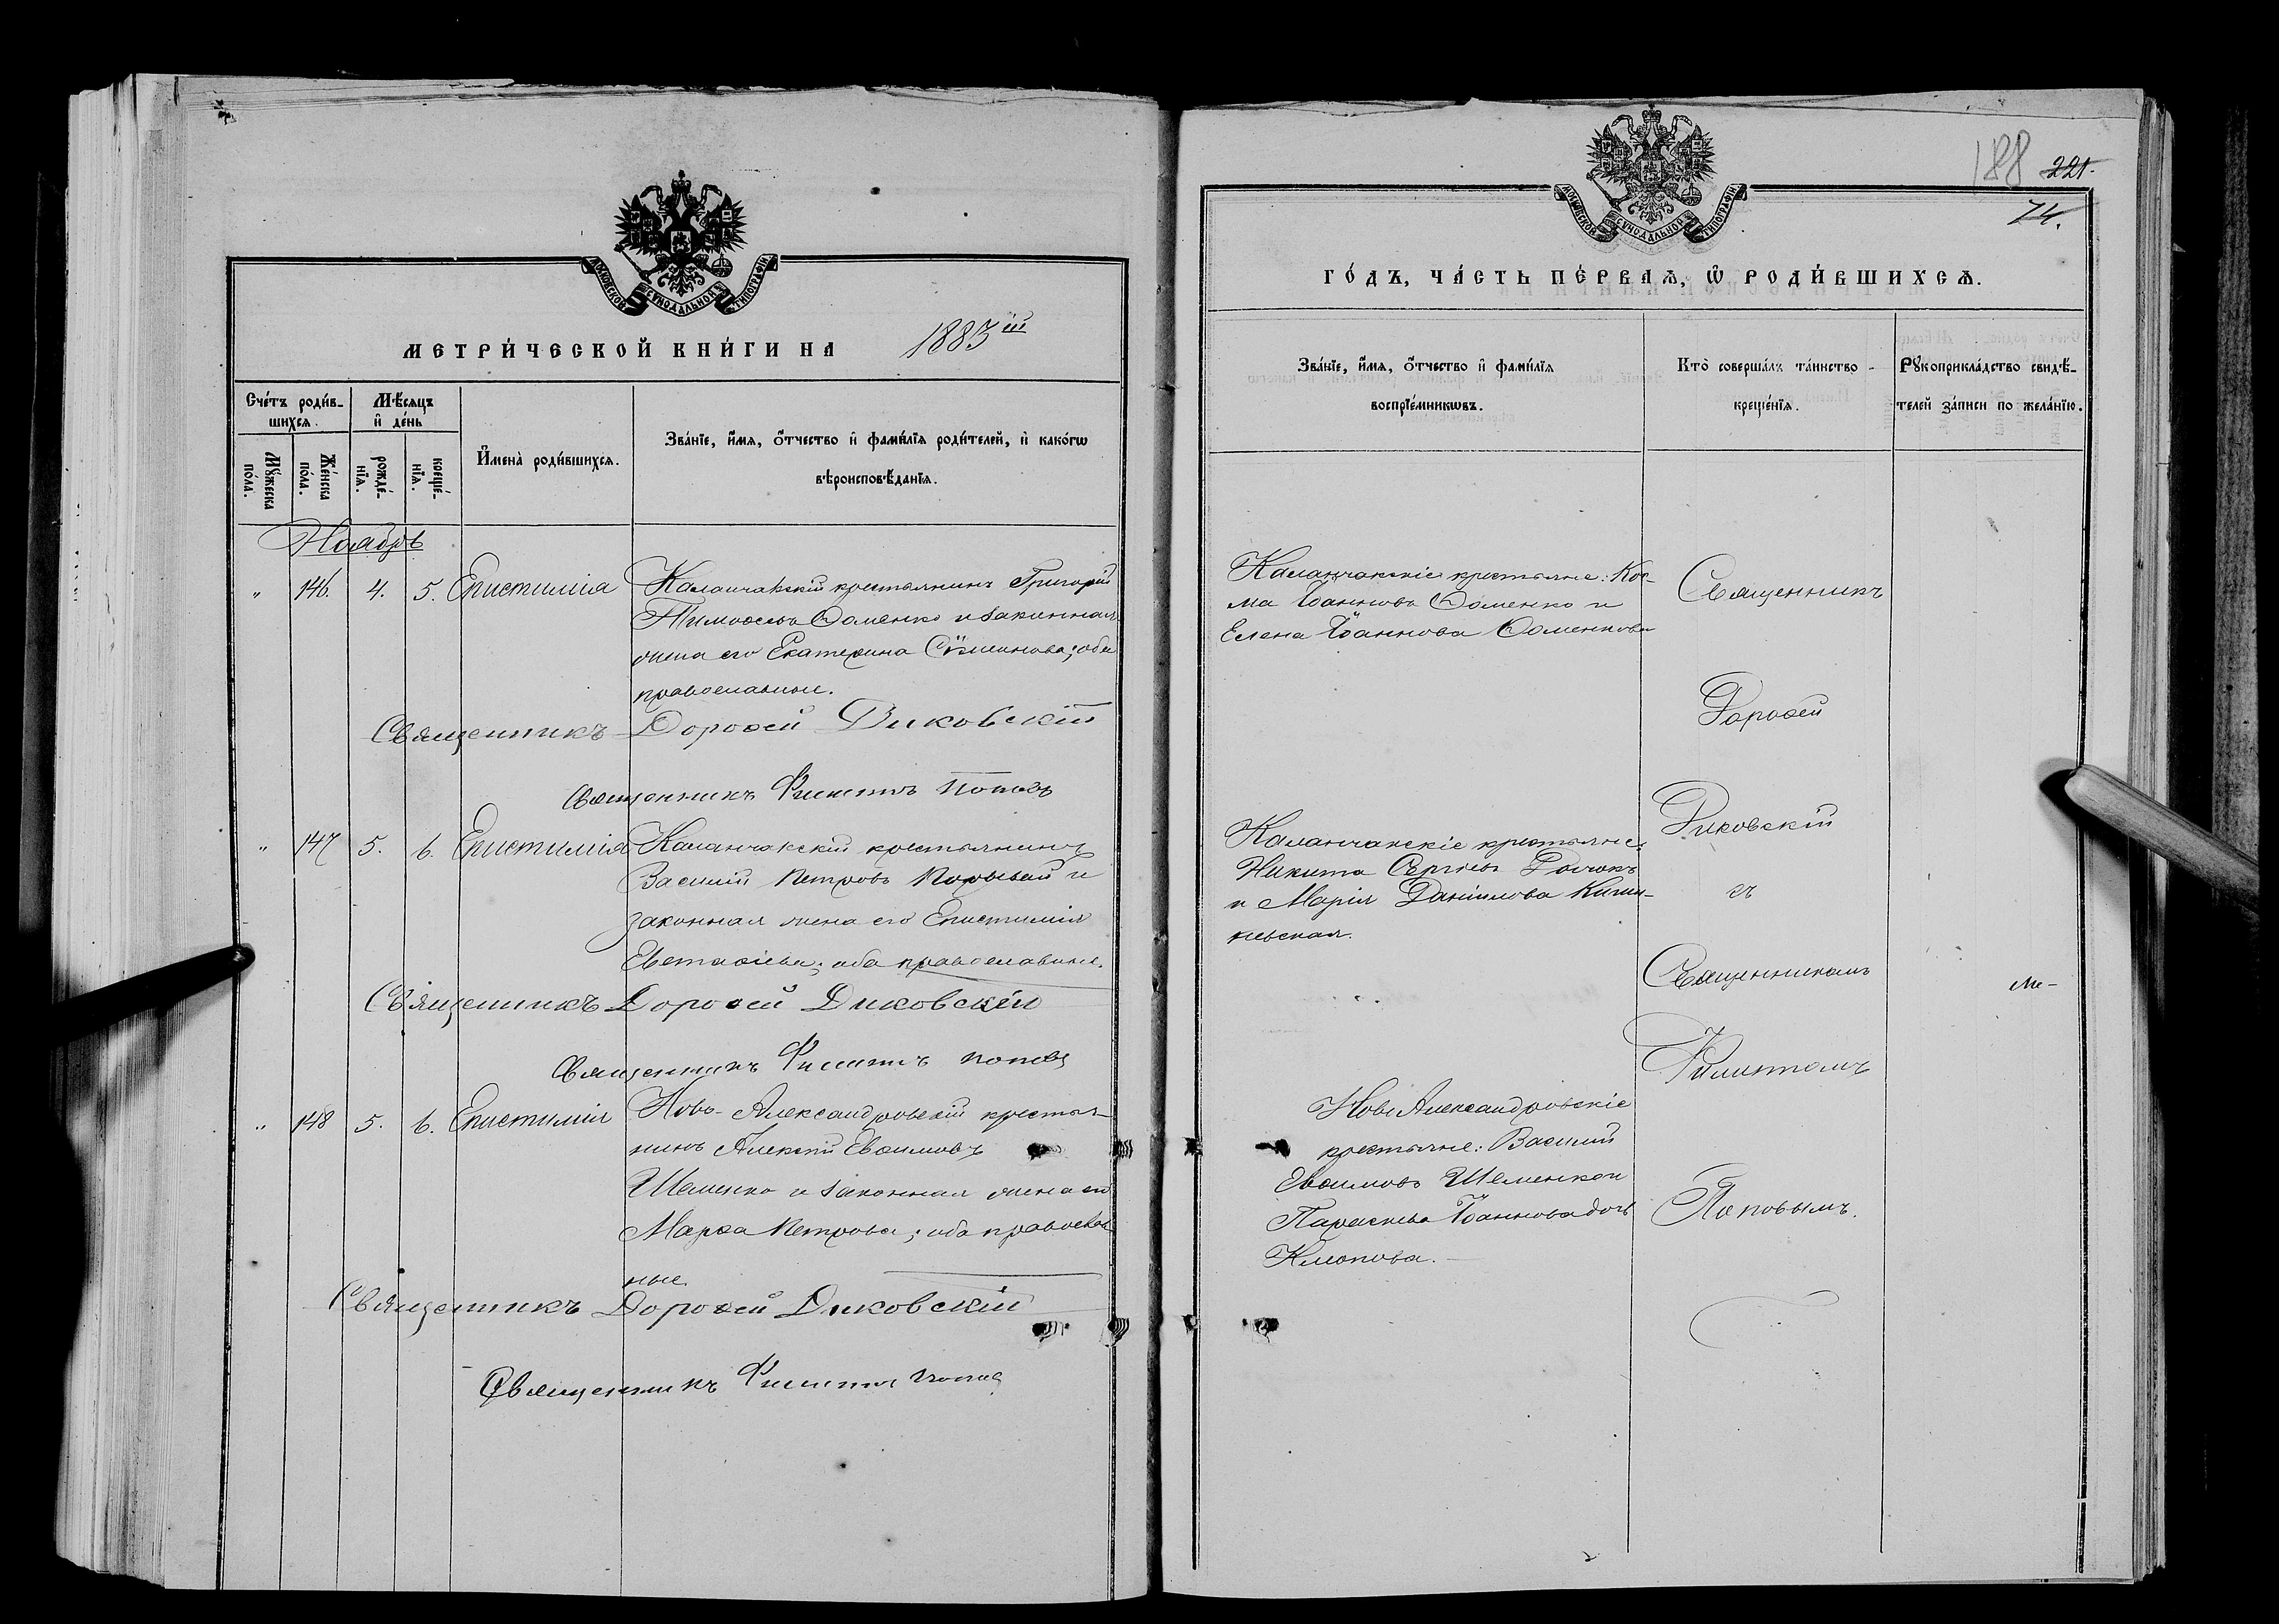 МОСКОВСКОЙ СѴНОДАЛЬНОЙ ТИПОГРАФІИ
МЕТРИ́ЧЕСКОЙ КНИ́ГИ НА 1883 ій
Сче́тъ роди́в-
шихсѧ.
Мѣ́сѧцъ
и҆ де́нь
Мꙋ́жеска
по́ла.
Же́нска
по́ла.
рожде́-
нїѧ.
креще́-
нїѧ.
И҆мена̀ роди́вшихсѧ.
Зва́нїе, и҆́мѧ, ѻ҆́тчество и҆ фами́лїѧ роди́телей, и҆ како́гѡ
вѣроисповѣ́данїѧ.
Ноябрь
" 146. 4. 5. Епистимія Каланчакскій крестьянинъ Григорій
Тимоѳеевъ Фоменко и законная
жена его Екатерина ; оба
православные.
Священникъ Дороѳей Диковскій
Священникъ Филиппъ Поповъ
" 147 5. 6. Епистимія Каланчакскій крестьянинъ
Василій Петровъ и
законная жена его Епистимія
Евстаѳіева; оба православные.
Священникъ Дороѳей Диковскій
Священникъ Филиппъ Поповъ
" 148 5. 6. Епистимія Ново-Александровскій крестья-
нинъ Алексѣй Евѳимовъ
Шеменко и законная жена его
Марѳа Петрова; оба православ
ные.
Священникъ Дороѳей Диковскій
Священникъ Филиппъ Поповъ
188 221.
74.
МОСКОВСКОЙ СѴНОДАЛЬНОЙ ТИПОГРАФІИ
ГО́ДЪ, ЧА́СТЬ ПЕ́РВАѦ, Ѡ҆ РОДИ́ВШИХСѦ.
Зва́нїе, и҆́мѧ, ѻ҆́тчество и҆ фами́лїѧ
воспрїе́мникѡвъ.
Кто̀ соверша́лъ та́инство
креще́нїѧ.
Рꙋкоприкла́дство свидѣ́-
телей за́писи по жела́нїю.
Каланчакскіе крестьяне: Кос-
ма Іоанновъ Фоменко и
Елена Іоаннова Фоменкова
Священникъ
Дороѳей
Диковскій
съ
Священникомъ
Филиппомъ
Поповымъ.
Каланчакскіе крестьяне:
Никита Сергіевъ
и Марія Даніилова
невская.
Ново Александровскіе
крестьяне: Василій
Евѳимовъ Шеменко и
Параскева Іоаннова дочь
Клюпова.